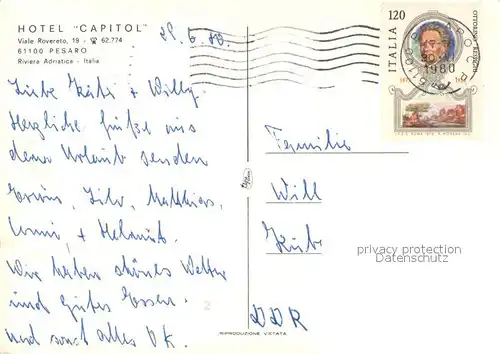 HOTEL "CAPITOL"
Viale Rovereto, 19 - ☎ 62.774
61100 PESARO
Riviera Adriatica - Italia
29.6.80.
Liebe Käti + Willy.
Herzliche Grüße aus
dem Urlaub senden
Silv, Matthias,
+ Helmut.
Wir haben schönes Wetter
und gutes Essen.
und sonst alles OK.
Familie
Will
DDR
120
ITALIA
1980
privacy protection
Datenschutz
RIPRODUZIONE VIETATA